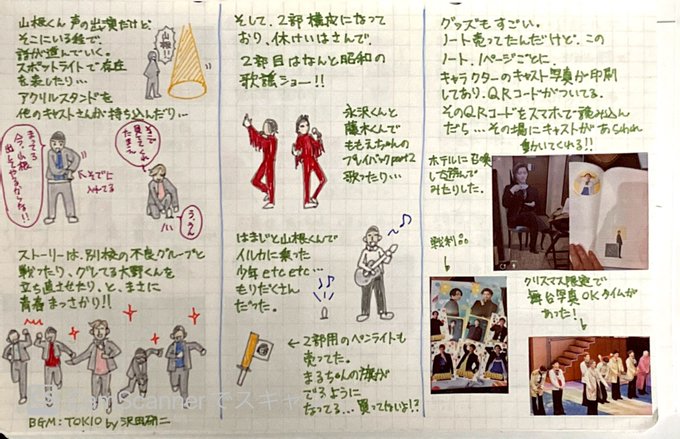 山根くん声の出演だけど、
そこにいる体で
話が進んでいく。
スポットライトで存在
を表したり…
アクリルスタンドを
他のキャストさんが持ち込んだり…
山根!!
まってろ
今、山根
出してやるからな!!
そでに
入ってる
そこで
見ててくれ
たまえ
う、うん
ストーリーは、別校の不良グループと
戦ったり、グレてる大野くんを
立ち直させたり、と、まさに
青春まっさかり!!
BGM:TOKIO by 沢田研二
そして、2部構成になって
おり、休けいはさんで、
2部目はなんと昭和の
歌謡ショー!!
永沢くんと
藤木くんで
ももえちゃんの
プレイバックpart2
歌ったり…
はまじと山根くんで
イルカに乗った
少年 etc etc…
もりだくさん
だった。
←2部用のペンライトも
売ってた。
まるちゃんの旗が
でるように
なってる…買ってないよ!?
グッズもすごい。
ノート売ってたんだけど、この
ノート、1ページごとに、
キャラクターのキャスト写真が印刷
してあり、QRコードがついてる。
そのQRコードをスマホで読み込ん
だら…その場にキャストがあらわれ
動いてくれる!!
ホテルに召喚
してみたりした。
戦利品
クリスマス限定で
舞台写真OKタイムが
あった!
CamScannerでスキャン